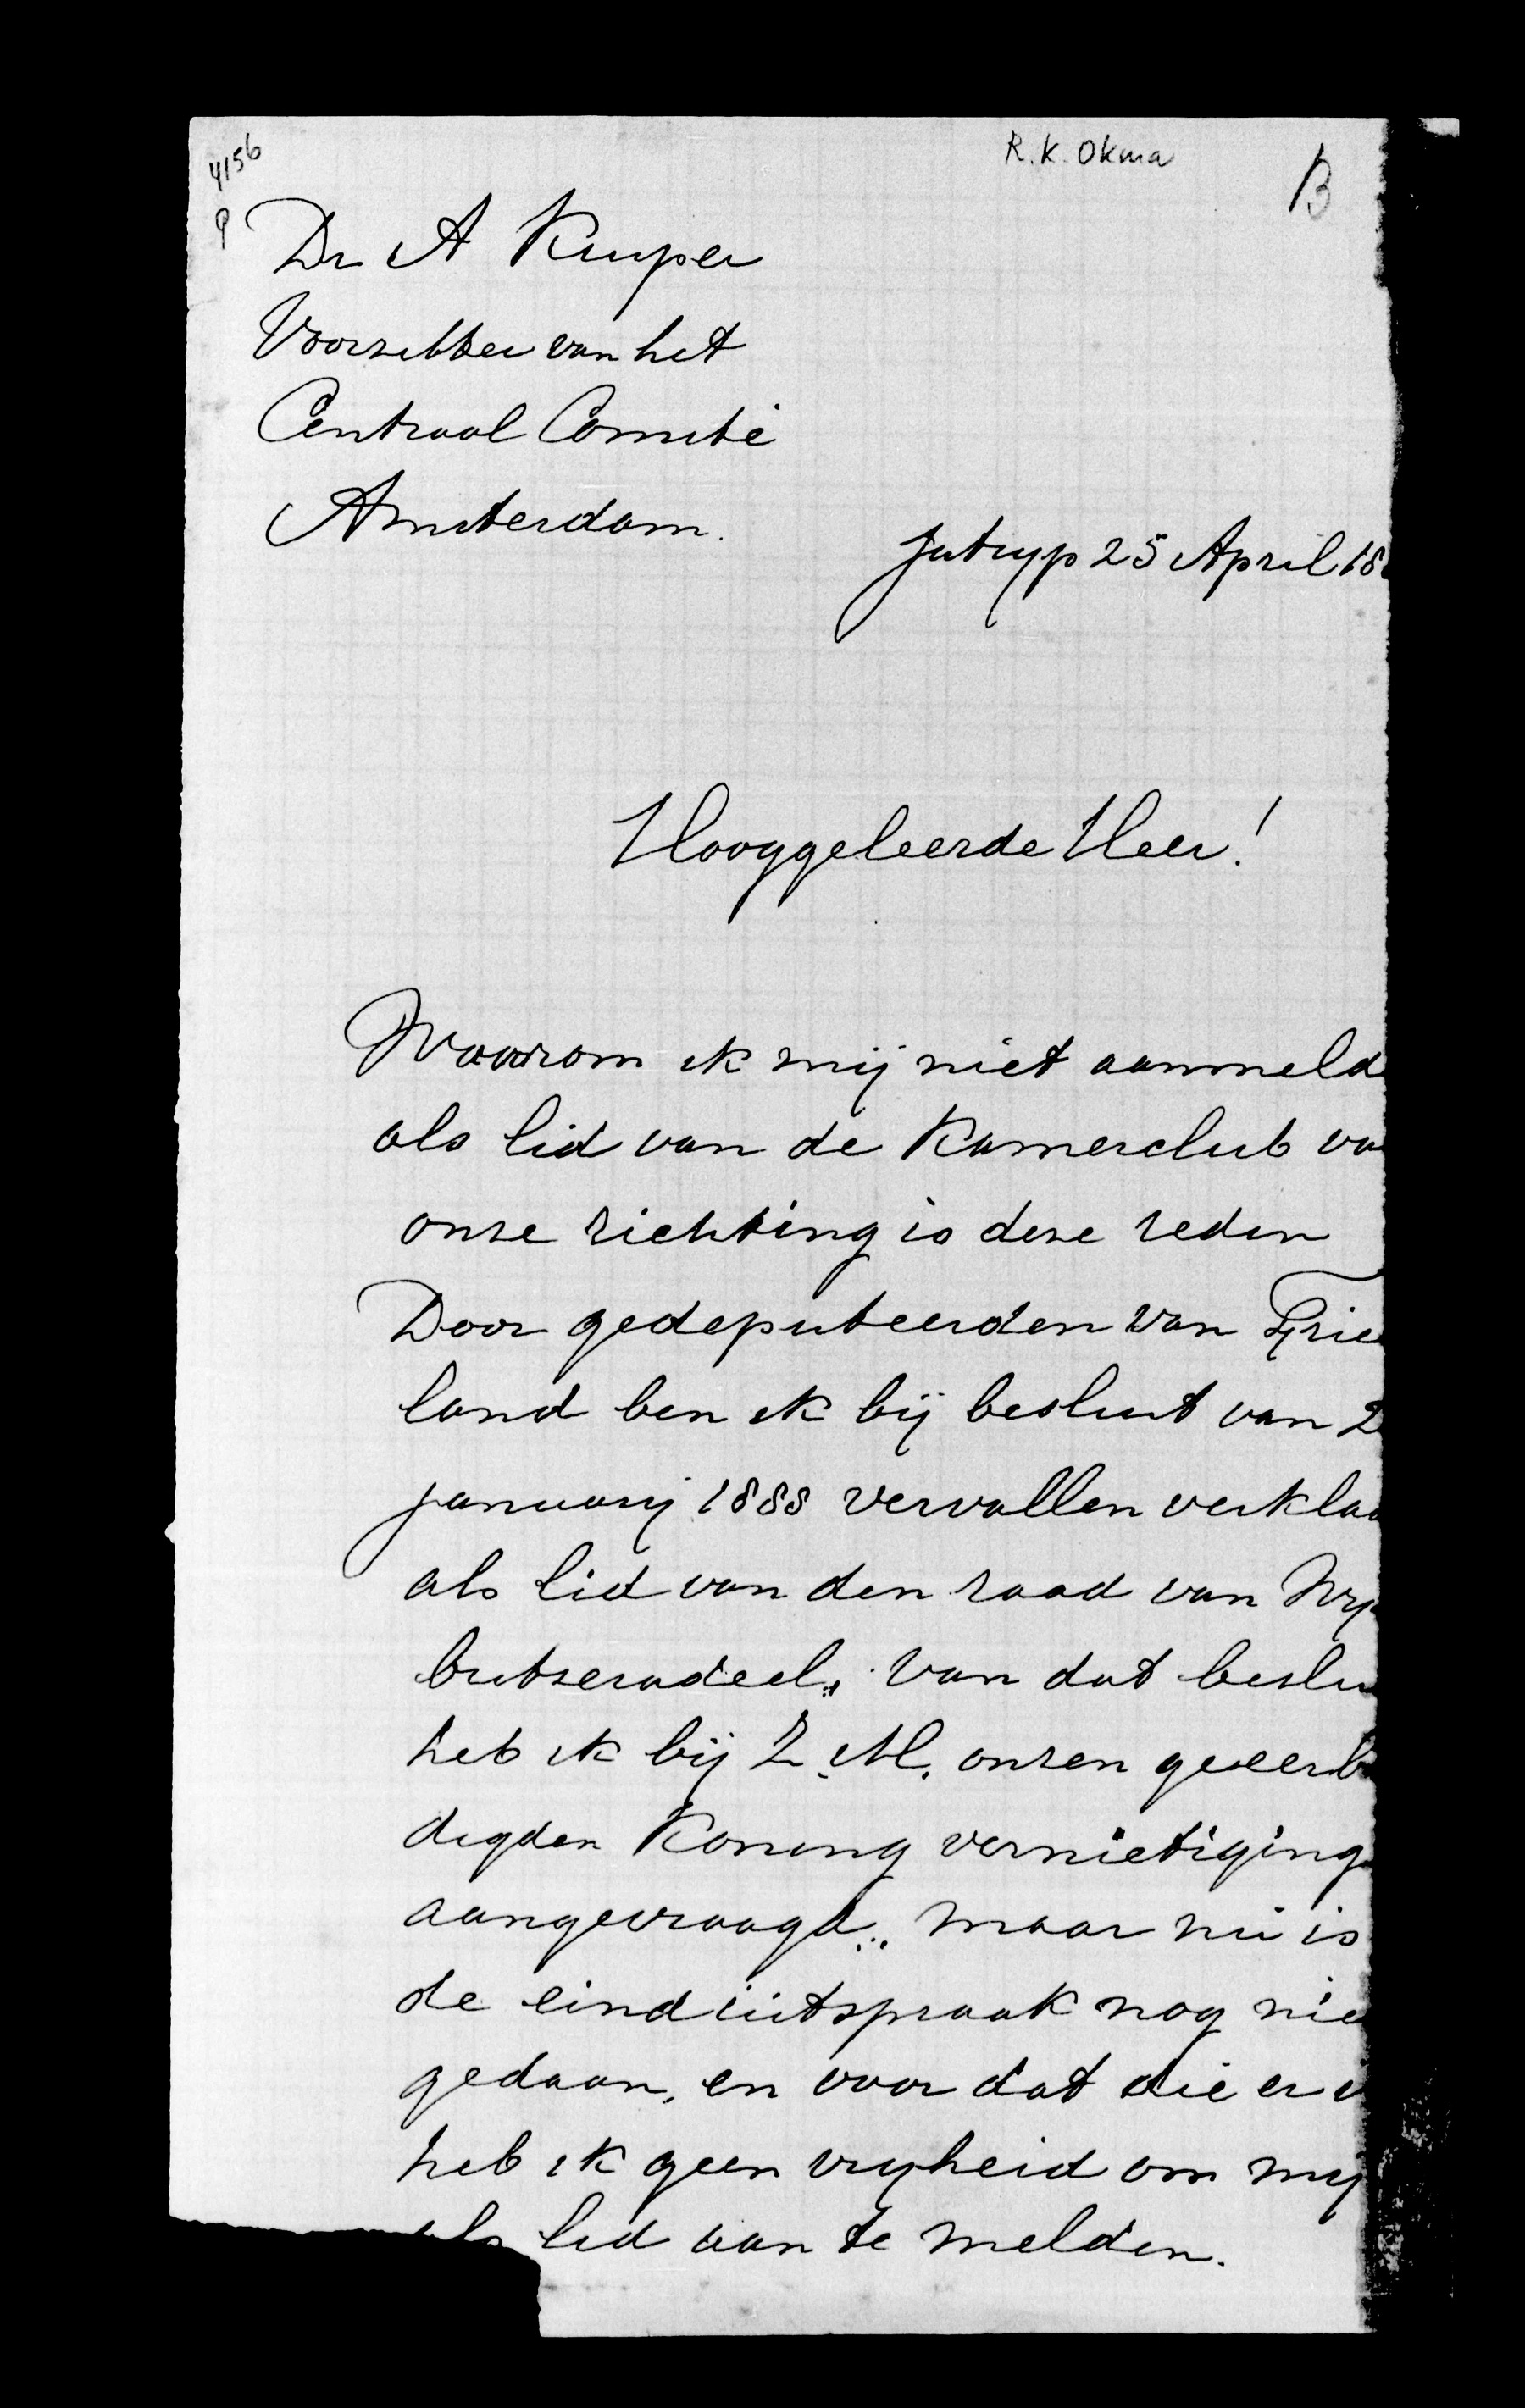 4156
R.K. Okma
B
9
Dr A Kuyper
Voorzitter van het
Centraal Comité
Amsterdam.
Jutryp 25 April 18
Hooggeleerde Heer!
Waarom ik mij niet aanmeld
als lid van de Kamerclub va
onze richting is deze reden
Door gedeputeerden van Frie
land ben ik bij besluit van 2
januarij 1888 vervallen verklaa
als lid van den raad van Wy
britseradeel. Van dat beslu
heb ik bij Z.M. onzen geëerb
digden Koning vernietiging
aangevraagd. maar nu is
de einduitspraak nog nie
gedaan, en voor dat die er
heb ik geen vryheid om my
als lid aan te melden.